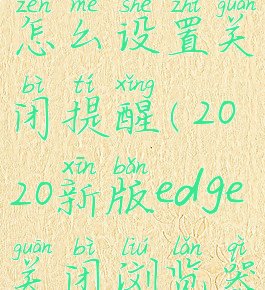 zěn me shè zhì guān
怎么设置关
bì tí xǐng
闭提醒(20
xīn bǎn
20新版edge
guān bì liú lǎn qì
关闭浏览器